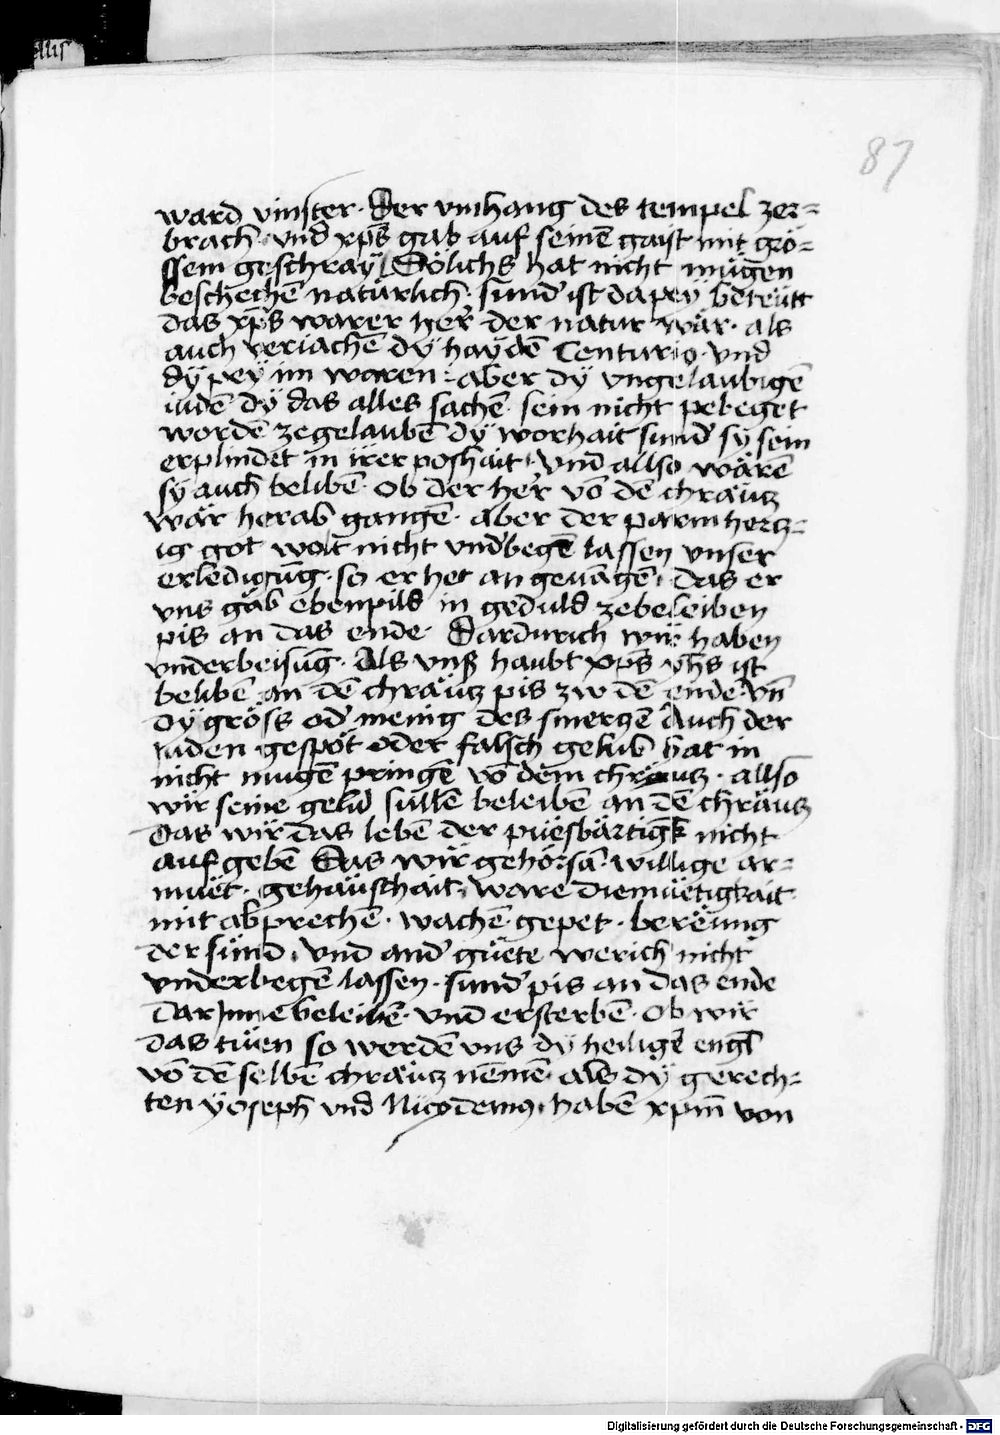 87
ward vinster · Der vmhang des tempel zer=
brach · vnd xp̄s gab auf seinē gaist mit grö=
ssem geschraÿ Sölichs hat nicht mügen
beschechē natürlich · sund' ist da peÿ bdeütt
das xp̄s warer her' der natur wär · als
auch veriachē dÿ haÿdē Centurio · vnd
dÿ peÿ im waren · aber dÿ vngelaubigē
iudē dÿ das alles sachē · sein nicht pebeget
wordē zegelaubē dÿ worhait sund' sÿ sein
erplindet in irer poshait · vnd allso wärē
sÿ auch belibē · ob der her' vō dē chräutz
wär herab gangē · aber der parmhertz=
ig got wolt nicht vnd'begē lassen vnser
erledigūg · so er het an geuangē · das er
vns gäb ebenpild in geduld zebeleiben
pis an das ende · Dardurich wir haben
vnderbeisūg · Als vnß haubt xp̄s yh̄s ist
belibē an dē chräutz pis zw dē ende · vn̄
dÿ gröss od' menig des smerczē Auch der
iuden gespöt oder falsch gelub hat in
nicht mugē pringē vō dem chräutz · allso
wir seine gelid süllē beleibē an dē chräutz
Das wir das lebē der püesbärtigk̄ nicht
aufgebē Das wir gehörsā · willige ar=
muet · gehäuschait · ware diemüetigkait
mit abprechē · wachē · gepet · bereüung
der sünd · vnd and' güete werich nicht
vnderbegē lassen · sund' pis an das ende
darJnne beleibē · vnd ersterbē · Ob wir
das tüen so werdē vns dÿ heiligē engl
vō dē selbē chräutz nēmē · als dÿ gerech=
ten ÿoseph vnd Nicodemus · habē xpm̄ von
Digitalisierung gefördert durch die Deutsche Forschungsgemeinschaft - DFG